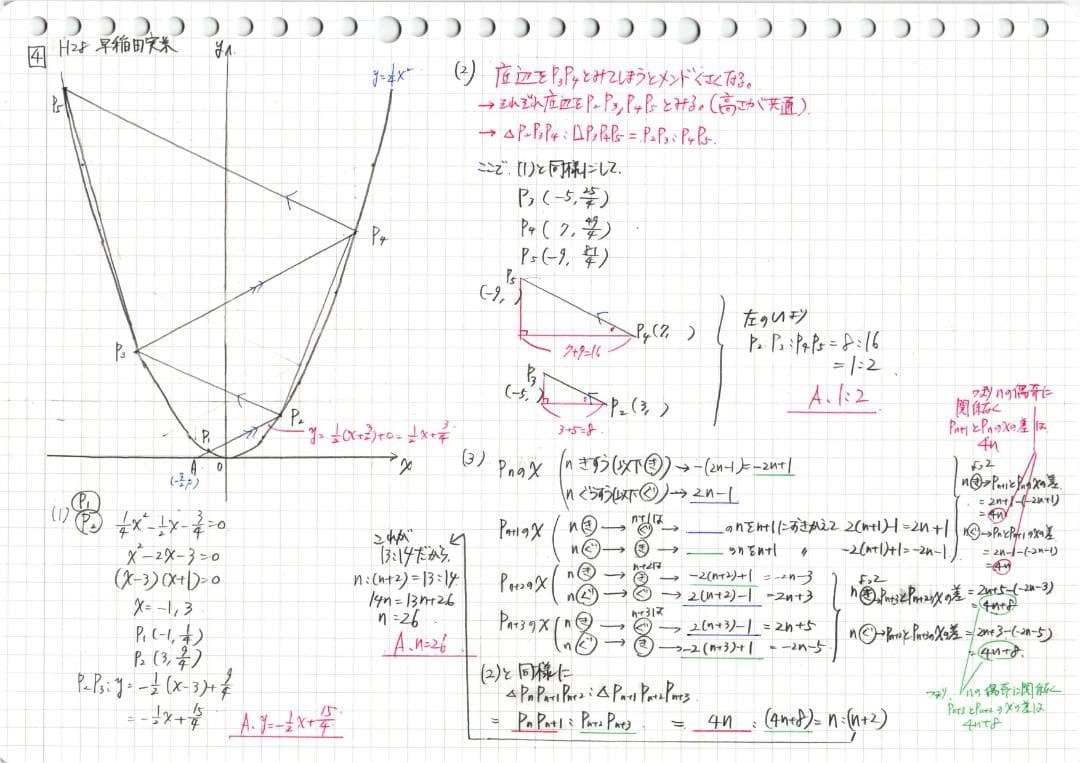 4 H28 早稲田実業
y
y=1/4x²
P5
P4
P3
P2
P1
A
O
x
(-3/2,0)
y=1/2(x+3/2)+0=1/2x+3/4
(1) P1 P2
1/4x²-1/2x-3/4=0
x²-2x-3=0
(x-3)(x+1)=0
x=-1,3
P1(-1,1/4)
P2(3,9/4)
P2P3:y=-1/2(x-3)+9/4
=-1/2x+15/4
A.y=-1/2x+15/4
(2) 底辺をP3P4とみてしまうとメンドくさくなる。
→それぞれ底辺をP2P3,P4P5とみる。(高さが共通)
→△P2P3P4:△P3P4P5=P2P3:P4P5.
ここで、(1)と同様にして、
P3(-5,25/4)
P4(7,49/4)
P5(-9,81/4)
P5
(-9, )
P4(7, )
7+9=16
P3
(-5, )
P2(3, )
3+5=8
左の図より
P2P3:P4P5=8:16
=1:2
A.1:2
(3) Pnのx
nきすう(以下き)→-(2n-1)=-2n+1
nぐうすう(以下ぐ)→2n-1
Pn+1のx
nき→n+1はぐ→のnをn+1におきかえて2(n+1)-1=2n+1
nぐ→き→のnをn+1 〃 -2(n+1)+1=-2n-1
Pn+2のx
nき→n+2はき→-2(n+2)+1=-2n-3
nぐ→ぐ→2(n+2)-1=2n+3
Pn+3のx
nき→n+3はぐ→2(n+3)-1=2n+5
nぐ→き→-2(n+3)+1=-2n-5
よって
nき→Pn+1とPnのxの差
=2n+1-(-2n+1)
=4n
nぐ→PnとPn+1のxの差
=2n-1-(-2n-1)
=4n
つまりnの偶奇に
関係なく
Pn+1とPnのxの差は
4n
よって
nき→Pn+3とPn+2のxの差=2n+5-(-2n-3)
=4n+8
nぐ→Pn+2とPn+3のxの差=2n+3-(-2n-5)
=4n+8.
つまり、nの偶奇に関係なく
Pn+3とPn+2のxの差は
4n+8
(2)と同様に
△PnPn+1Pn+2:△Pn+1Pn+2Pn+3
=PnPn+1:Pn+2Pn+3 = 4n:(4n+8)=n:(n+2)
これが
13:14だから、
n:(n+2)=13:14
14n=13n+26
n=26
A.n=26